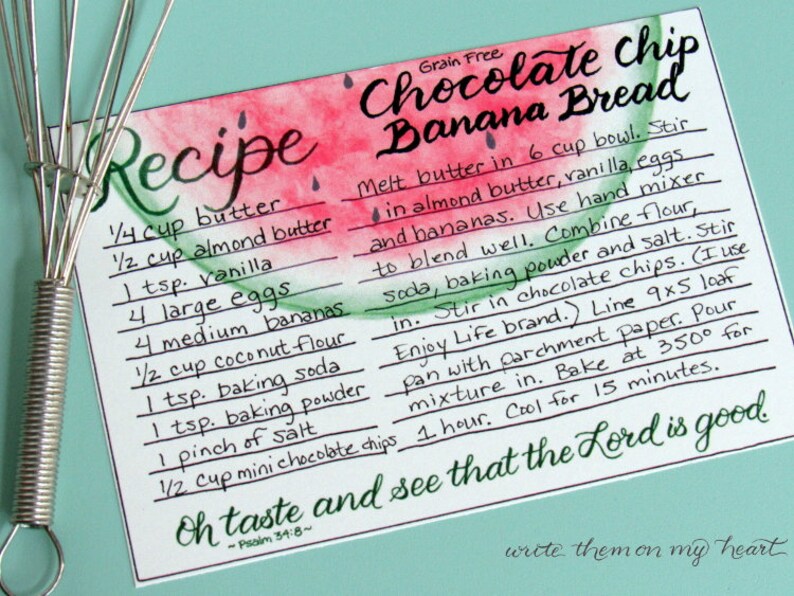 Recipe
Grain Free
Chocolate Chip
Banana Bread
1/4 cup butter
1/2 cup almond butter
1 tsp. vanilla
4 large eggs
4 medium bananas
1/2 cup coconut flour
1 tsp. baking soda
1 tsp. baking powder
1 pinch of salt
1/2 cup mini chocolate chips
Melt butter in 6 cup bowl. Stir
in almond butter, vanilla, eggs
and bananas. Use hand mixer
to blend well. Combine flour,
soda, baking powder and salt. Stir
in. Stir in chocolate chips. (I use
Enjoy Life brand.) Line 9x5 loaf
pan with parchment paper. Pour
mixture in. Bake at 350° for
1 hour. Cool for 15 minutes.
Oh taste and see that the Lord is good.
~Psalm 34:8~
write them on my heart